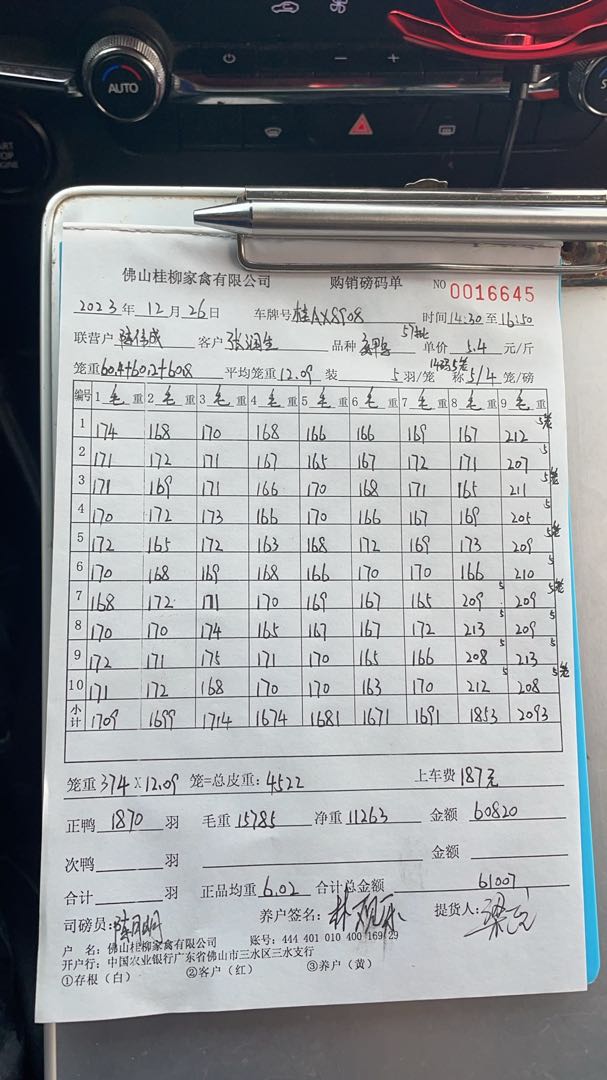 AUTO
佛山桂柳家禽有限公司 购销磅码单 NO 0016645
2023年12月26日 车牌号桂AX8908 时间14:30至16:50
57批
联营户 陆伟成 客户 张润生 品种 单价 5.4 元/斤
14码5笼
笼重60.4+60.2+60.8 平均笼重12.09 装 5羽/笼 称5/4笼/磅
编号 1毛重 2毛重 3毛重 4毛重 5毛重 6毛重 7毛重 8毛重 9毛重
1 174 168 170 168 166 166 169 167 212 5笼
2 171 172 171 167 165 167 172 171 207 5
3 171 169 171 166 170 168 171 165 211 5笼
4 170 172 173 166 170 166 167 169 205 5
5 172 165 172 163 168 172 169 173 209 5笼
6 170 168 169 168 166 170 170 166 210 5
7 168 172 171 170 169 167 165 209 5 209 5笼
8 170 170 174 165 167 167 172 213 5 209 5
9 172 171 175 171 170 165 166 208 5 213 5
10 171 172 168 170 170 163 170 212 5 208 5笼
小计 1709 1699 1714 1674 1681 1671 1691 1853 2093
笼重374×12.09 笼=总皮重:4522 上车费187元
正鸭 1870 羽 毛重15785 净重11263 金额 60820
次鸭 羽 金额
合计 羽 正品均重6.02 合计总金额 61007
司磅员: 养户签名: 提货人:
户 名:佛山桂柳家禽有限公司 账号:444 401 010 400 169 29
开户行:中国农业银行广东省佛山市三水区三水支行
①存根(白) ②客户(红) ③养户(黄)